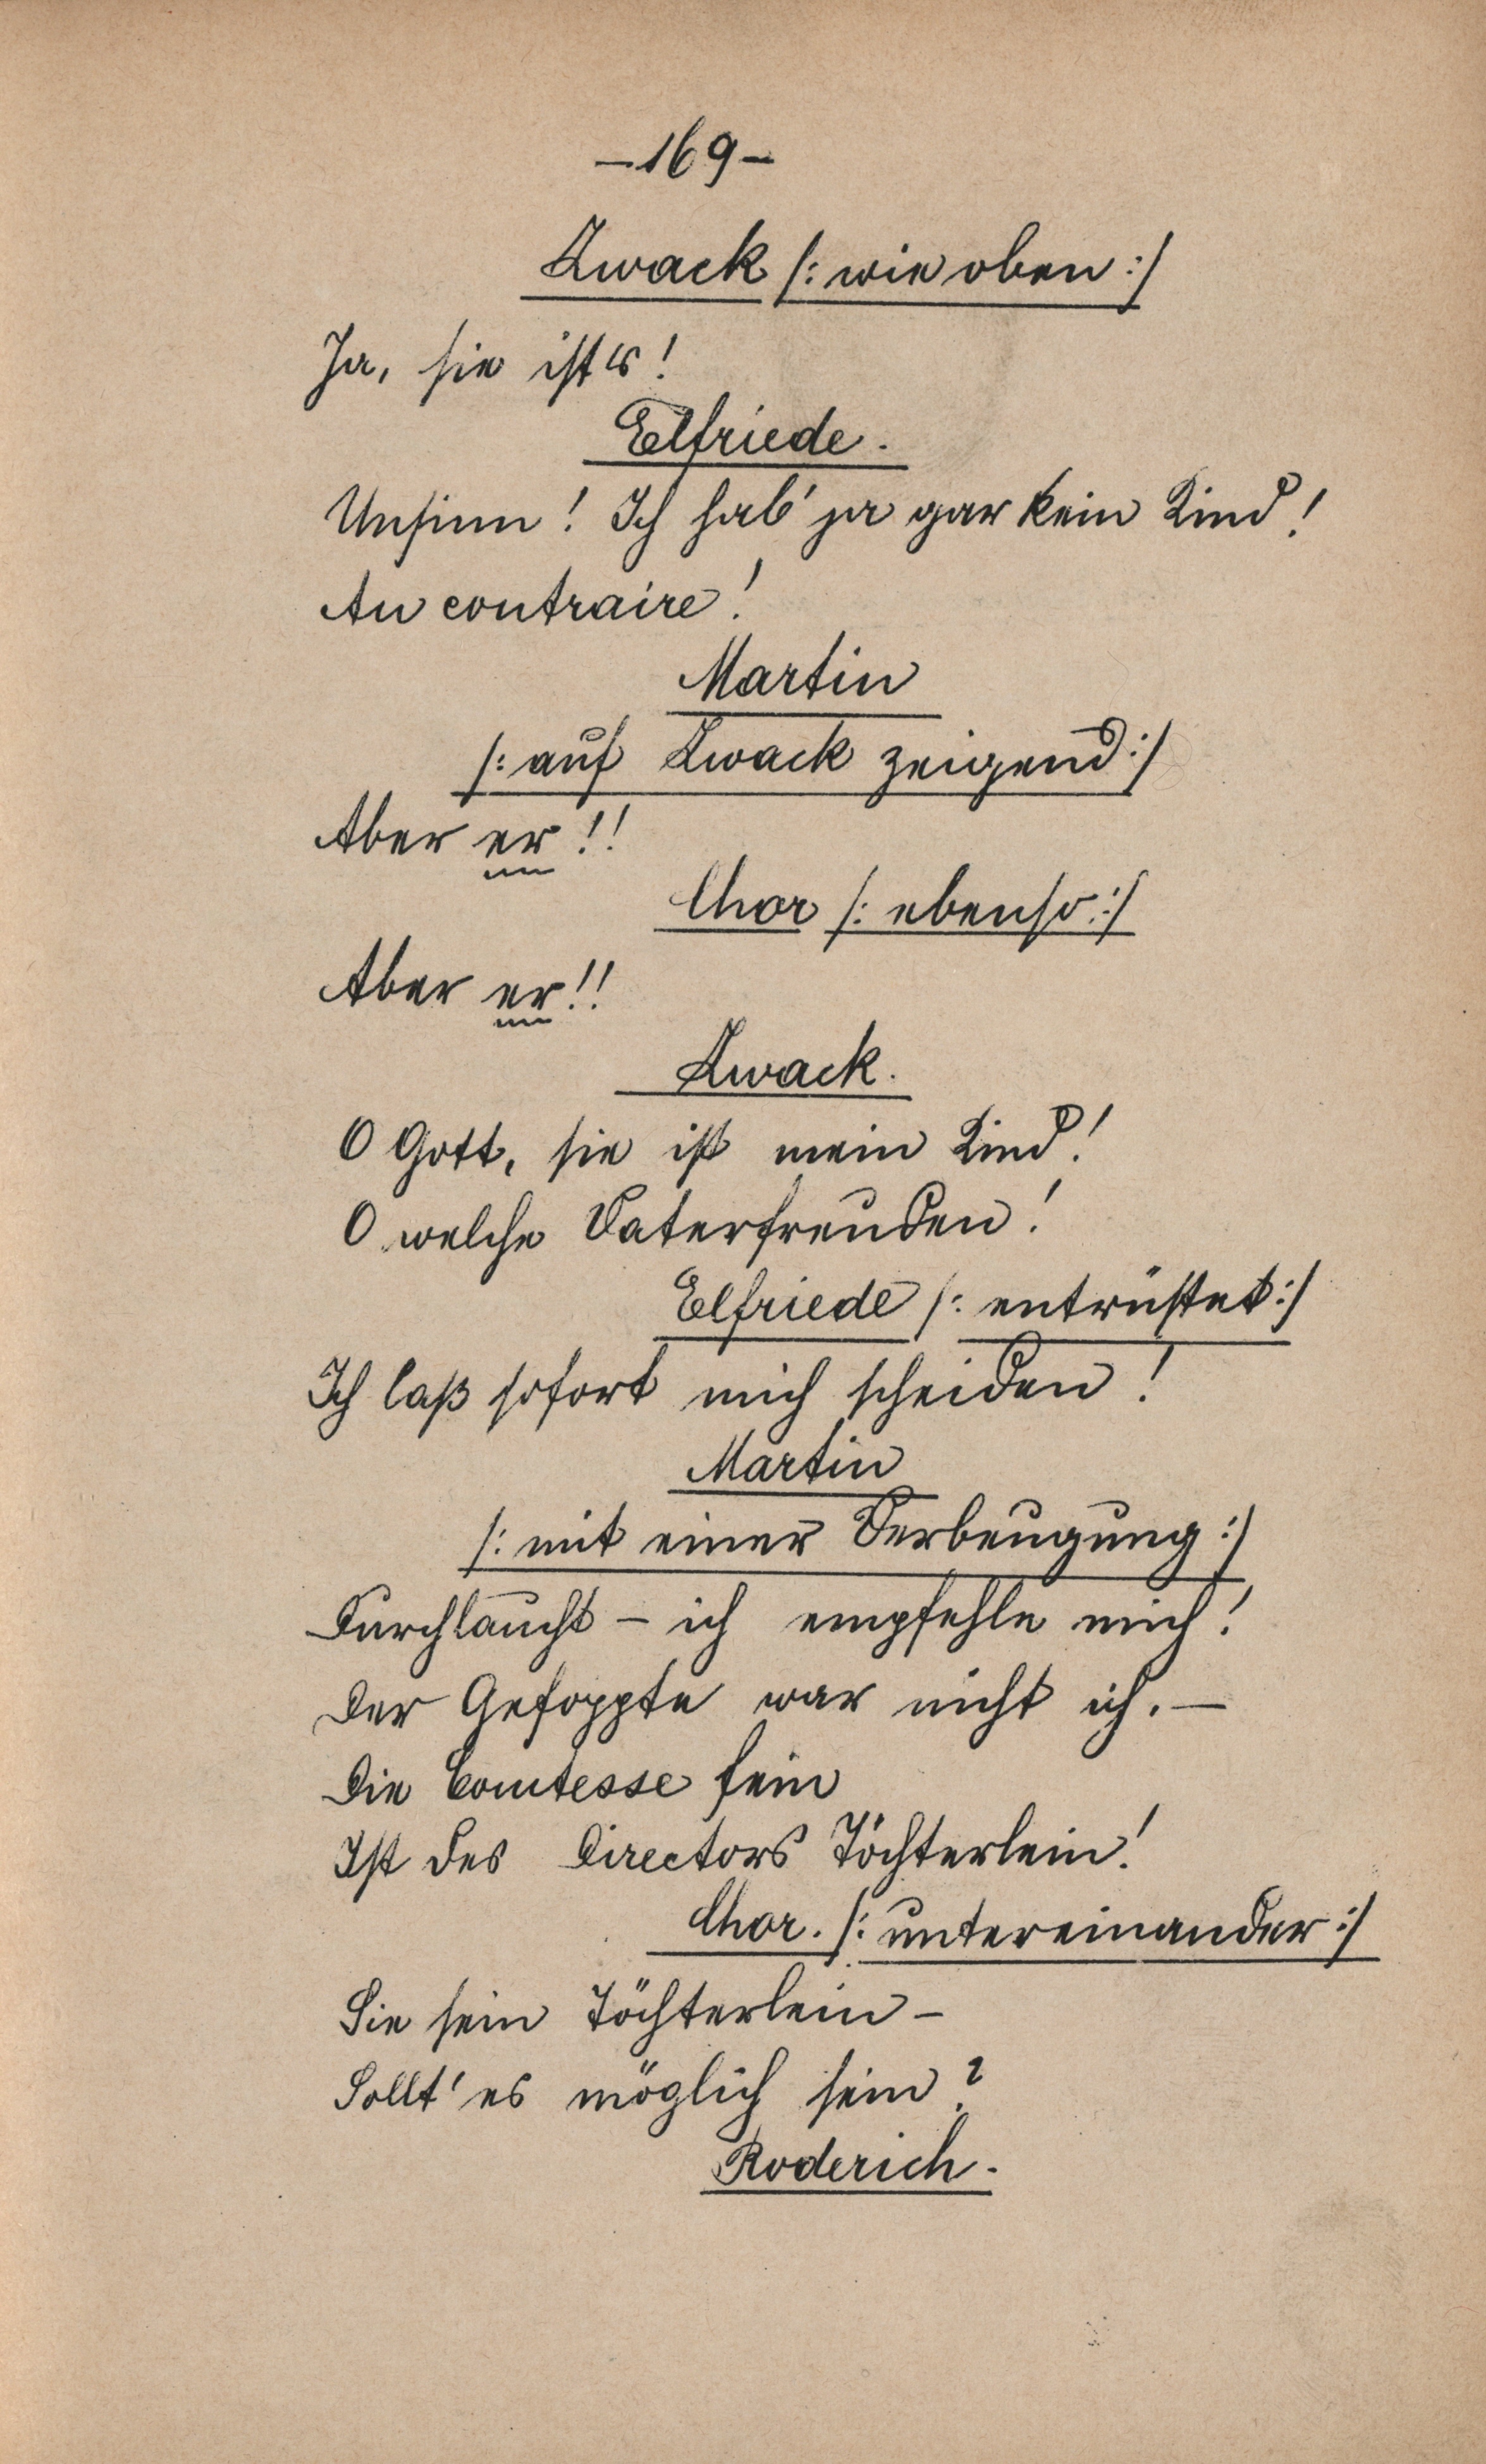 -169-
Zwack /: wie oben :/
Ja, sie ist's!
Elfriede.
Unsinn! Ich hab' ja gar kein Kind!
Au contraire!
Martin
/: auf Zwack zeigend :/
Aber er!!
Chor /: ebenso :/
Aber er!!
Zwack.
O Gott, sie ist mein Kind!
O welche Vaterfreuden!
Elfriede /: entrüstet :/
Ich laß sofort mich scheiden!
Martin
/: mit einer Verbeugung :/
Durchlaucht – ich empfehle mich!
Der Gefoppte war nicht ich. –
Die Comtesse fein
Ist des Directors Töchterlein!
Chor. /: untereinander :/
Sie sein Töchterlein –
Sollt' es möglich sein?
Roderich.